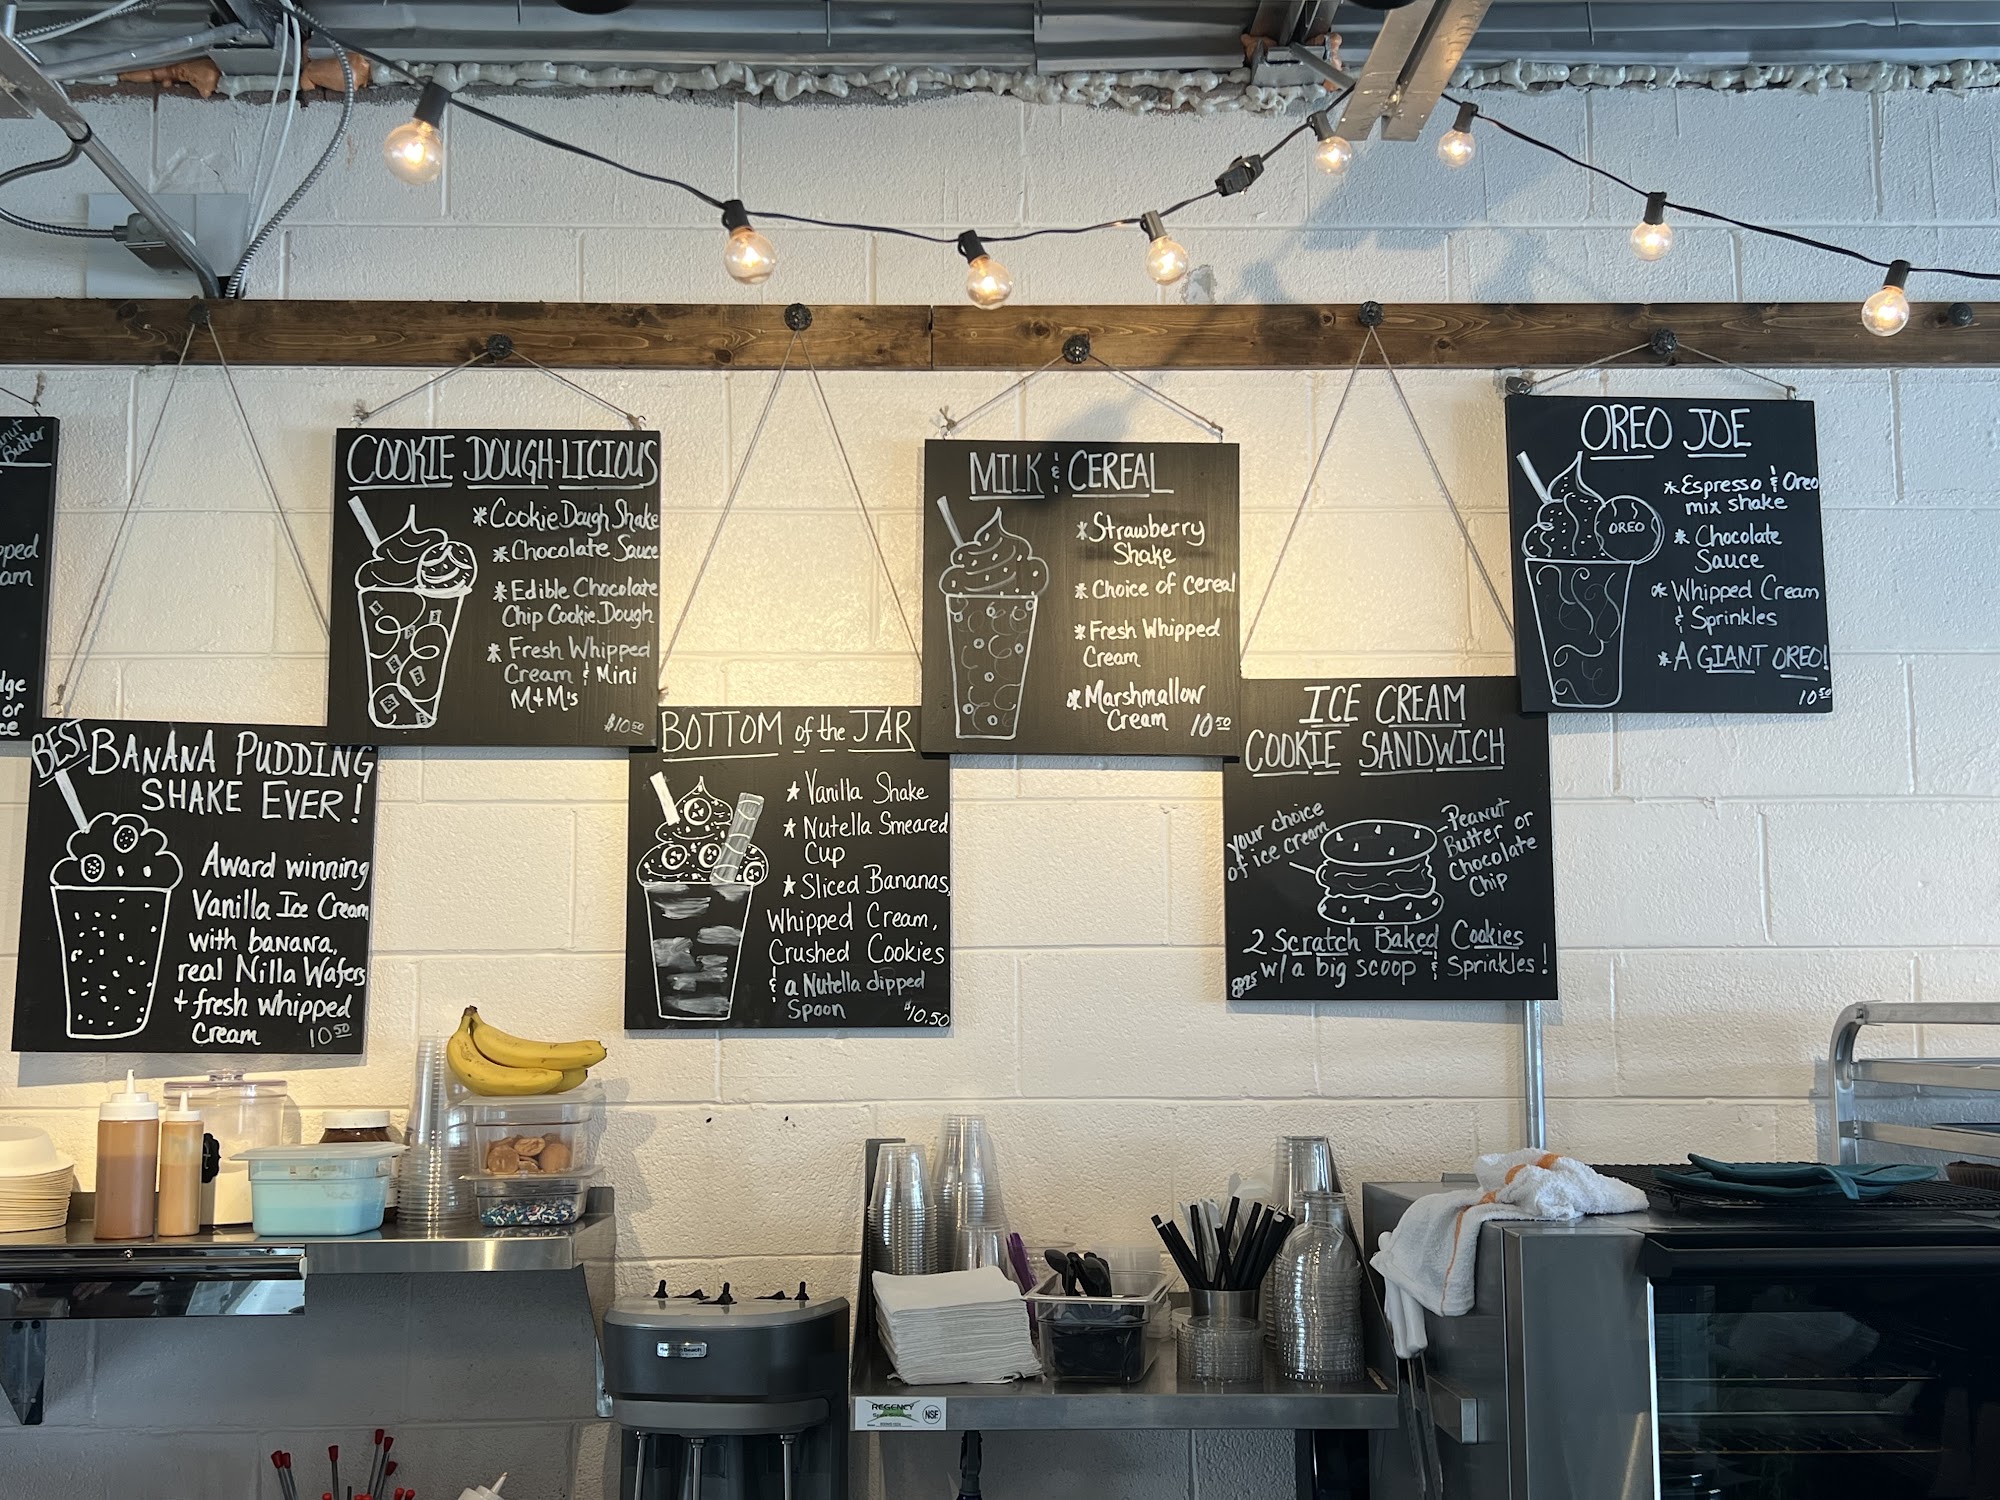 nut
Butter
pped
am
dge
or
ce
BEST BANANA PUDDING
SHAKE EVER!
Award winning
Vanilla Ice Cream
with banana,
real Nilla Wafers
+ fresh whipped
cream 10 50
COOKIE DOUGH-LICIOUS
* Cookie Dough Shake
* Chocolate Sauce
* Edible Chocolate
Chip Cookie Dough
* Fresh Whipped
Cream & Mini
M+M's
$10 50
BOTTOM of the JAR
* Vanilla Shake
* Nutella Smeared
Cup
* Sliced Bananas,
Whipped Cream,
Crushed Cookies
& a Nutella dipped
Spoon
$10.50
MILK & CEREAL
* Strawberry
Shake
* Choice of Cereal
* Fresh Whipped
Cream
* Marshmallow
Cream 10 50
ICE CREAM
COOKIE SANDWICH
your choice
of ice cream
Peanut
Butter or
Chocolate
Chip
2 Scratch Baked Cookies
w/a big scoop & Sprinkles!
$8 25
OREO JOE
OREO
* Espresso & Oreo
mix shake
* Chocolate
Sauce
* Whipped Cream
& Sprinkles
* A GIANT OREO!
10 50
Hamilton Beach
REGENCY
NSF